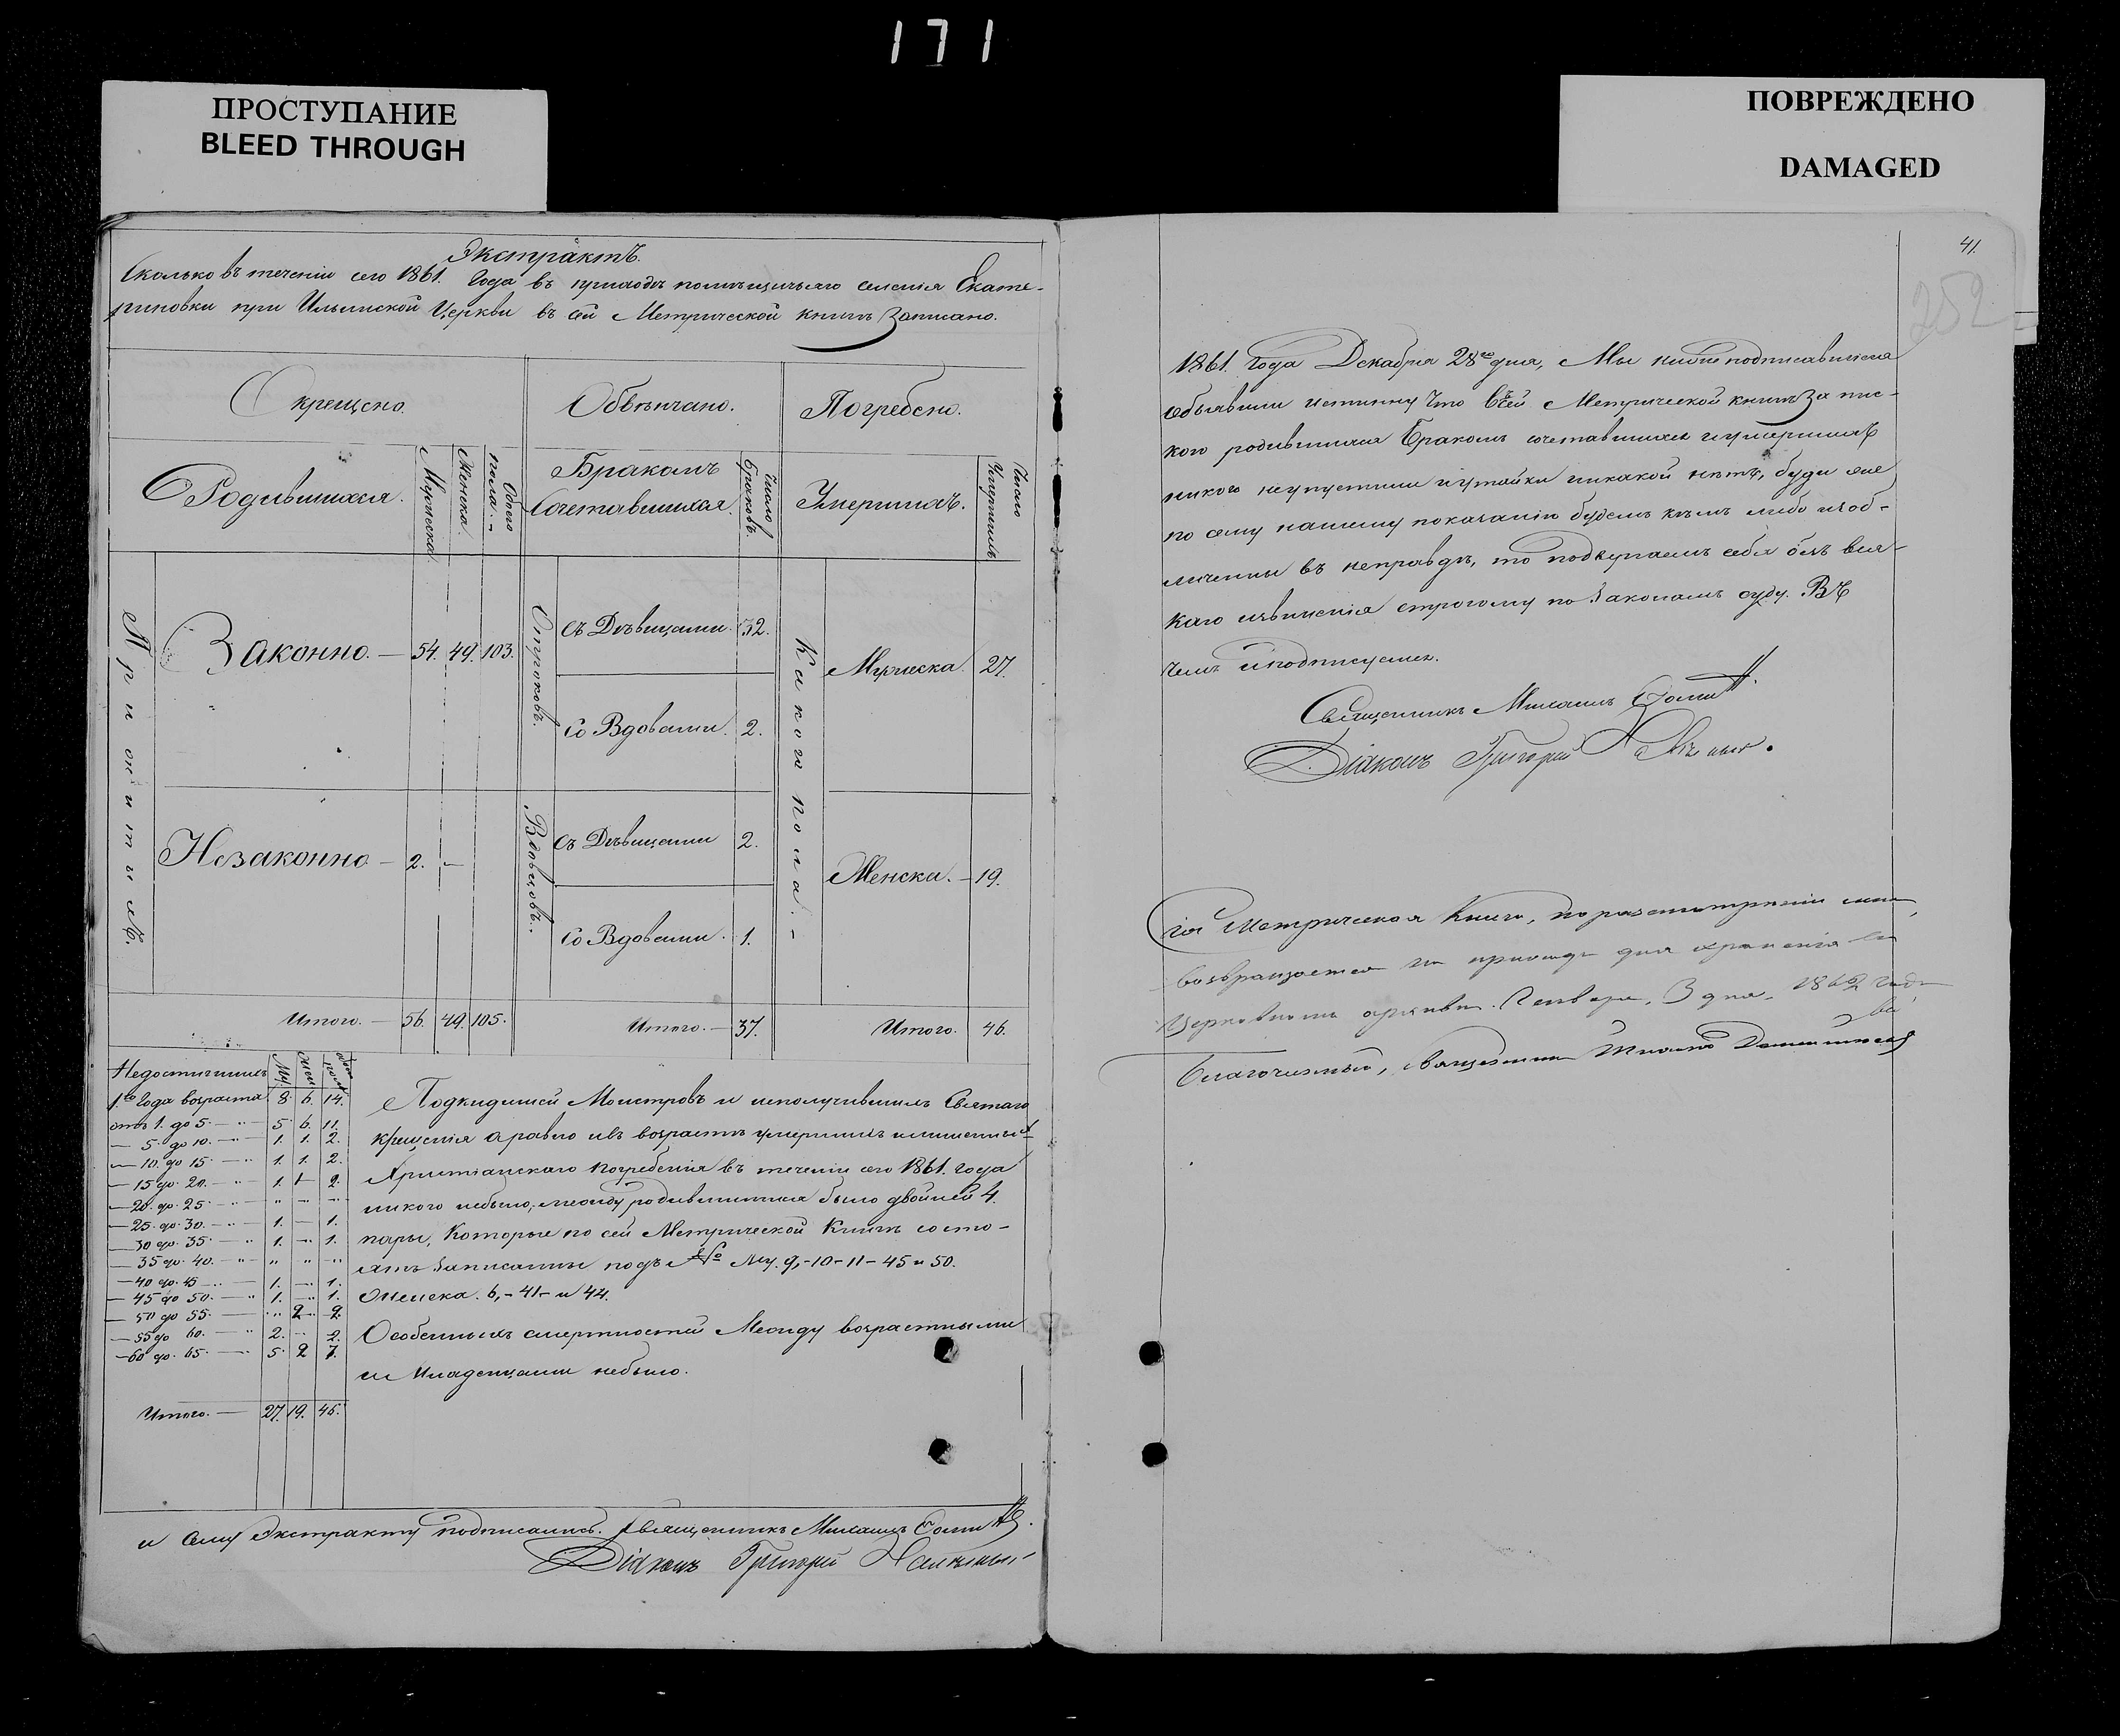 171
ПРОСТУПАНИЕ
BLEED THROUGH
ПОВРЕЖДЕНО
DAMAGED
Экстрактъ.
Сколько въ теченіи сего 1861. Года въ приходѣ помѣщичьяго селенія Екате-
риновки при Ильинской Церкви въ сей Метрической книгѣ Записано.
Окрещено. Обвѣнчано. Погребено.
Родившихся. Мужеска. Женска. Обоего пола.
Бракомъ Сочетавшихся. Число браковъ.
Умершихъ. Число Умершихъ
Прижитыхъ.
Законно. — 54. 49. 103.
Незаконно — 2. —
Отроковъ.
Съ Дѣвицами. 32.
Со Вдовами. 2.
Вдовцовъ.
Съ Дѣвицами 2.
Со Вдовами. 1.
Какого пола. —
Мужеска. 27.
Женска. — 19.
Итого. — 56. 49. 105. Итого. — 37. Итого. 46.
Недостигшихъ Му. Жен.
1го Года возраста 8. 6. 14.
отъ 1. до 5. — 5. 6. 11.
— 5. до 10. — 1. 1. 2.
— 10. до 15. — 1. 1. 2.
— 15 до 20. — 1. 1 2.
— 20. до 25 — „ „ „
— 25. до 30. — 1. — 1.
— 30 до 35. 1. — 1.
— 35 до 40. — „ „ „
— 40 до 45 — 1. — 1.
— 45 до 50. — 1. 1.
— 50 до 55. — „ 2 2.
— 55 до 60. — 2. 2.
— 60 до 65. — 5. 2 7.
Итого. — 27. 19. 46.
Подкидышей Монстровъ и неполучившихъ Святаго
крещенія а равно и въ возрастѣ умершихъ лишенныхъ
Христіанскаго погребенія въ теченіи сего 1861. года
никого небыло, между родившимися было двойней 4.
пары, Которые по сей Метрической Книгѣ состо-
ятъ Записанные подъ № Му. 9, - 10 - 11 - 45 и 50.
Женска. 6, - 41 - и 44.
Особенныхъ смертностей Между возрастными
и Младенцами небыло.
и Сему Экстракту подписались. Священникъ Михаилъ
Діаконъ Григорій
41.
252
1861. Года Декабря 28го дня, Мы нижеподписавшіеся
объявили истинну Что въ сей Метрической книгѣ За пис-
кою родившихся Бракомъ сочетавшихся и умершихъ
никого неупустили и утайки никакой нѣтъ, буди же
по сему нашему показанію будемъ кѣмъ либо изоб-
личенны въ неправдѣ, то подвергаемъ себя безъ вся-
каго извиненія строгому по Законамъ суду. Въ
чемъ и подписуемся.
Священникъ Михаилъ
Діаконъ Григорій
Сія Метрическая Книга, по разсмотреніи мною,
возвращается въ приходъ для храненія въ
Церковномъ архивѣ. Генваря, 3 дня. 1862 года
Благочинный, Священникъ